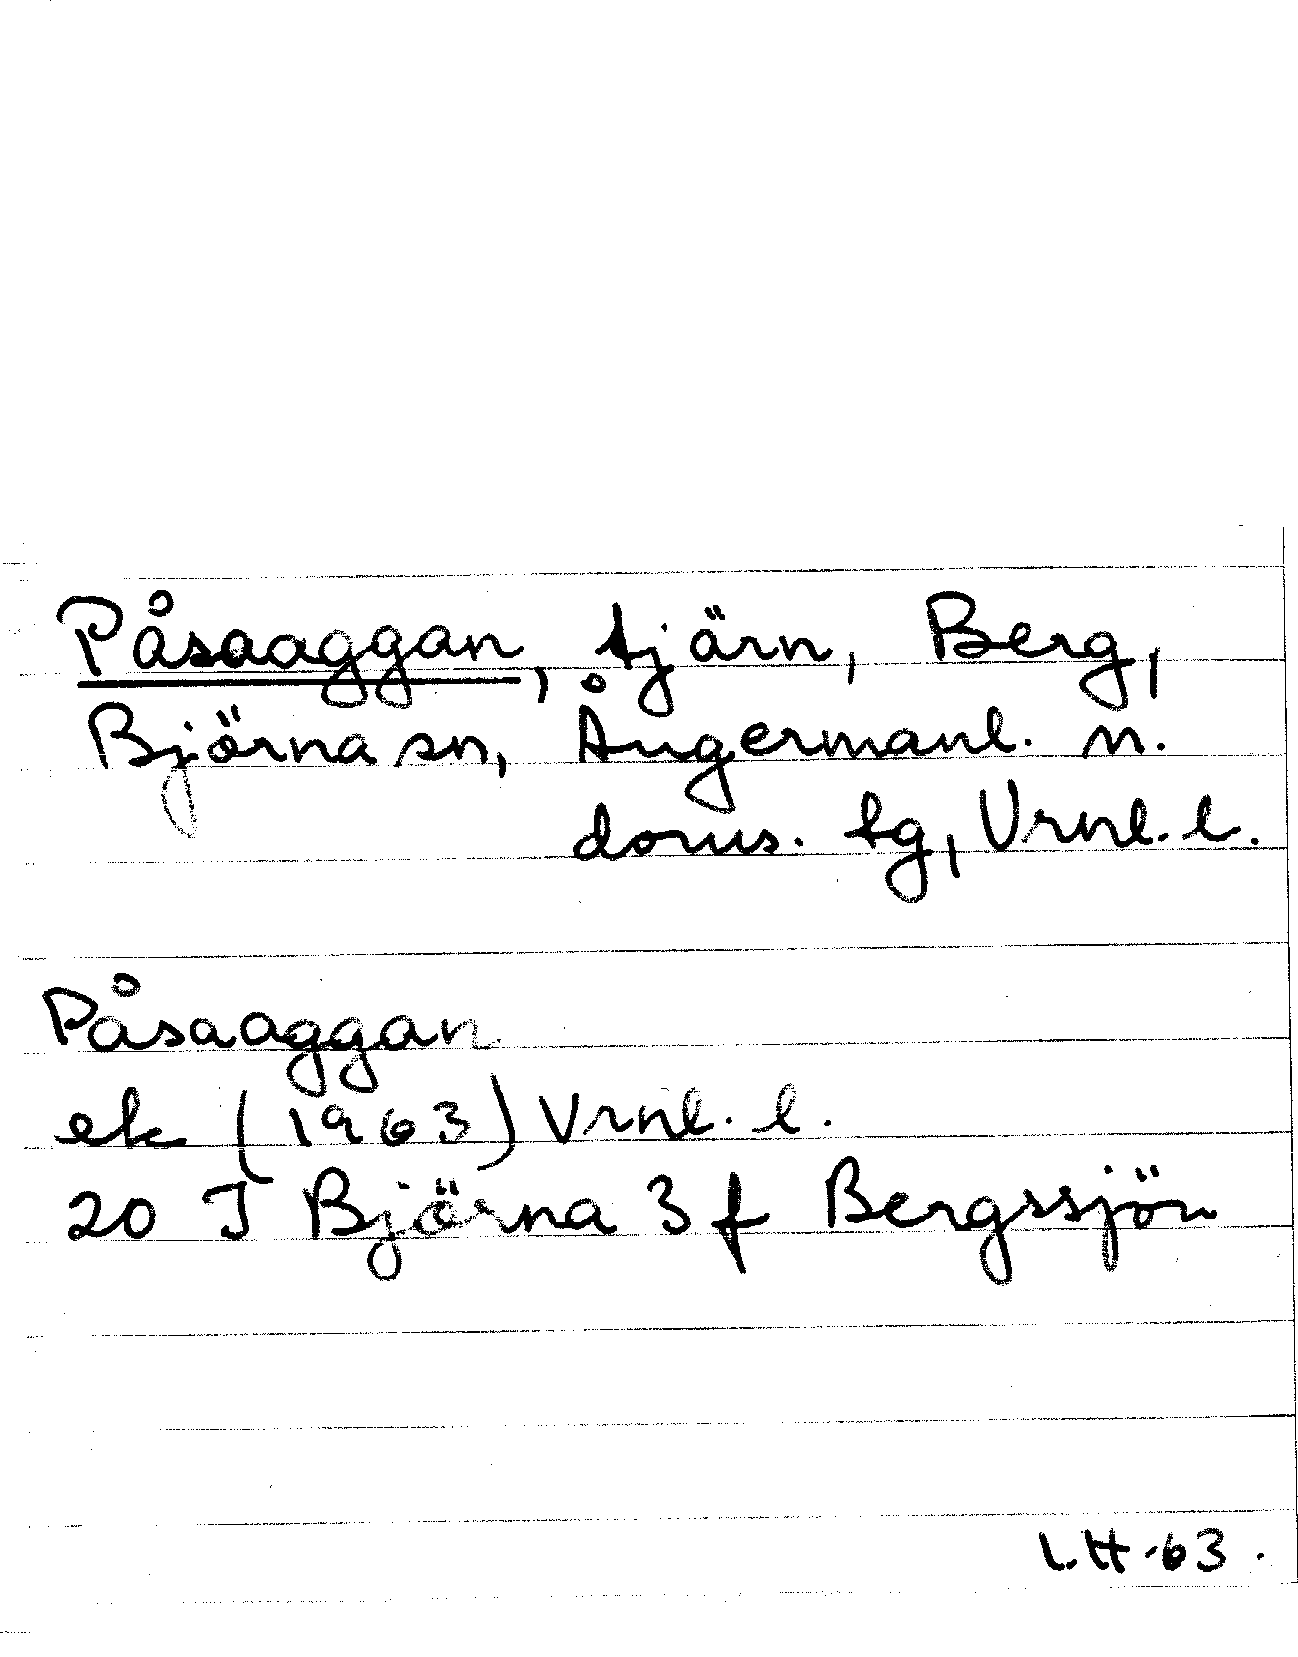 Påsaaggan, tjärn, Berg,
Björna sn, Ångermanl. n.
doms. tg, Vrnl. l.
Påsaaggan
ek (1963) Vrnl. l.
20 I Björna 3 f Bergssjön
L.H -63.